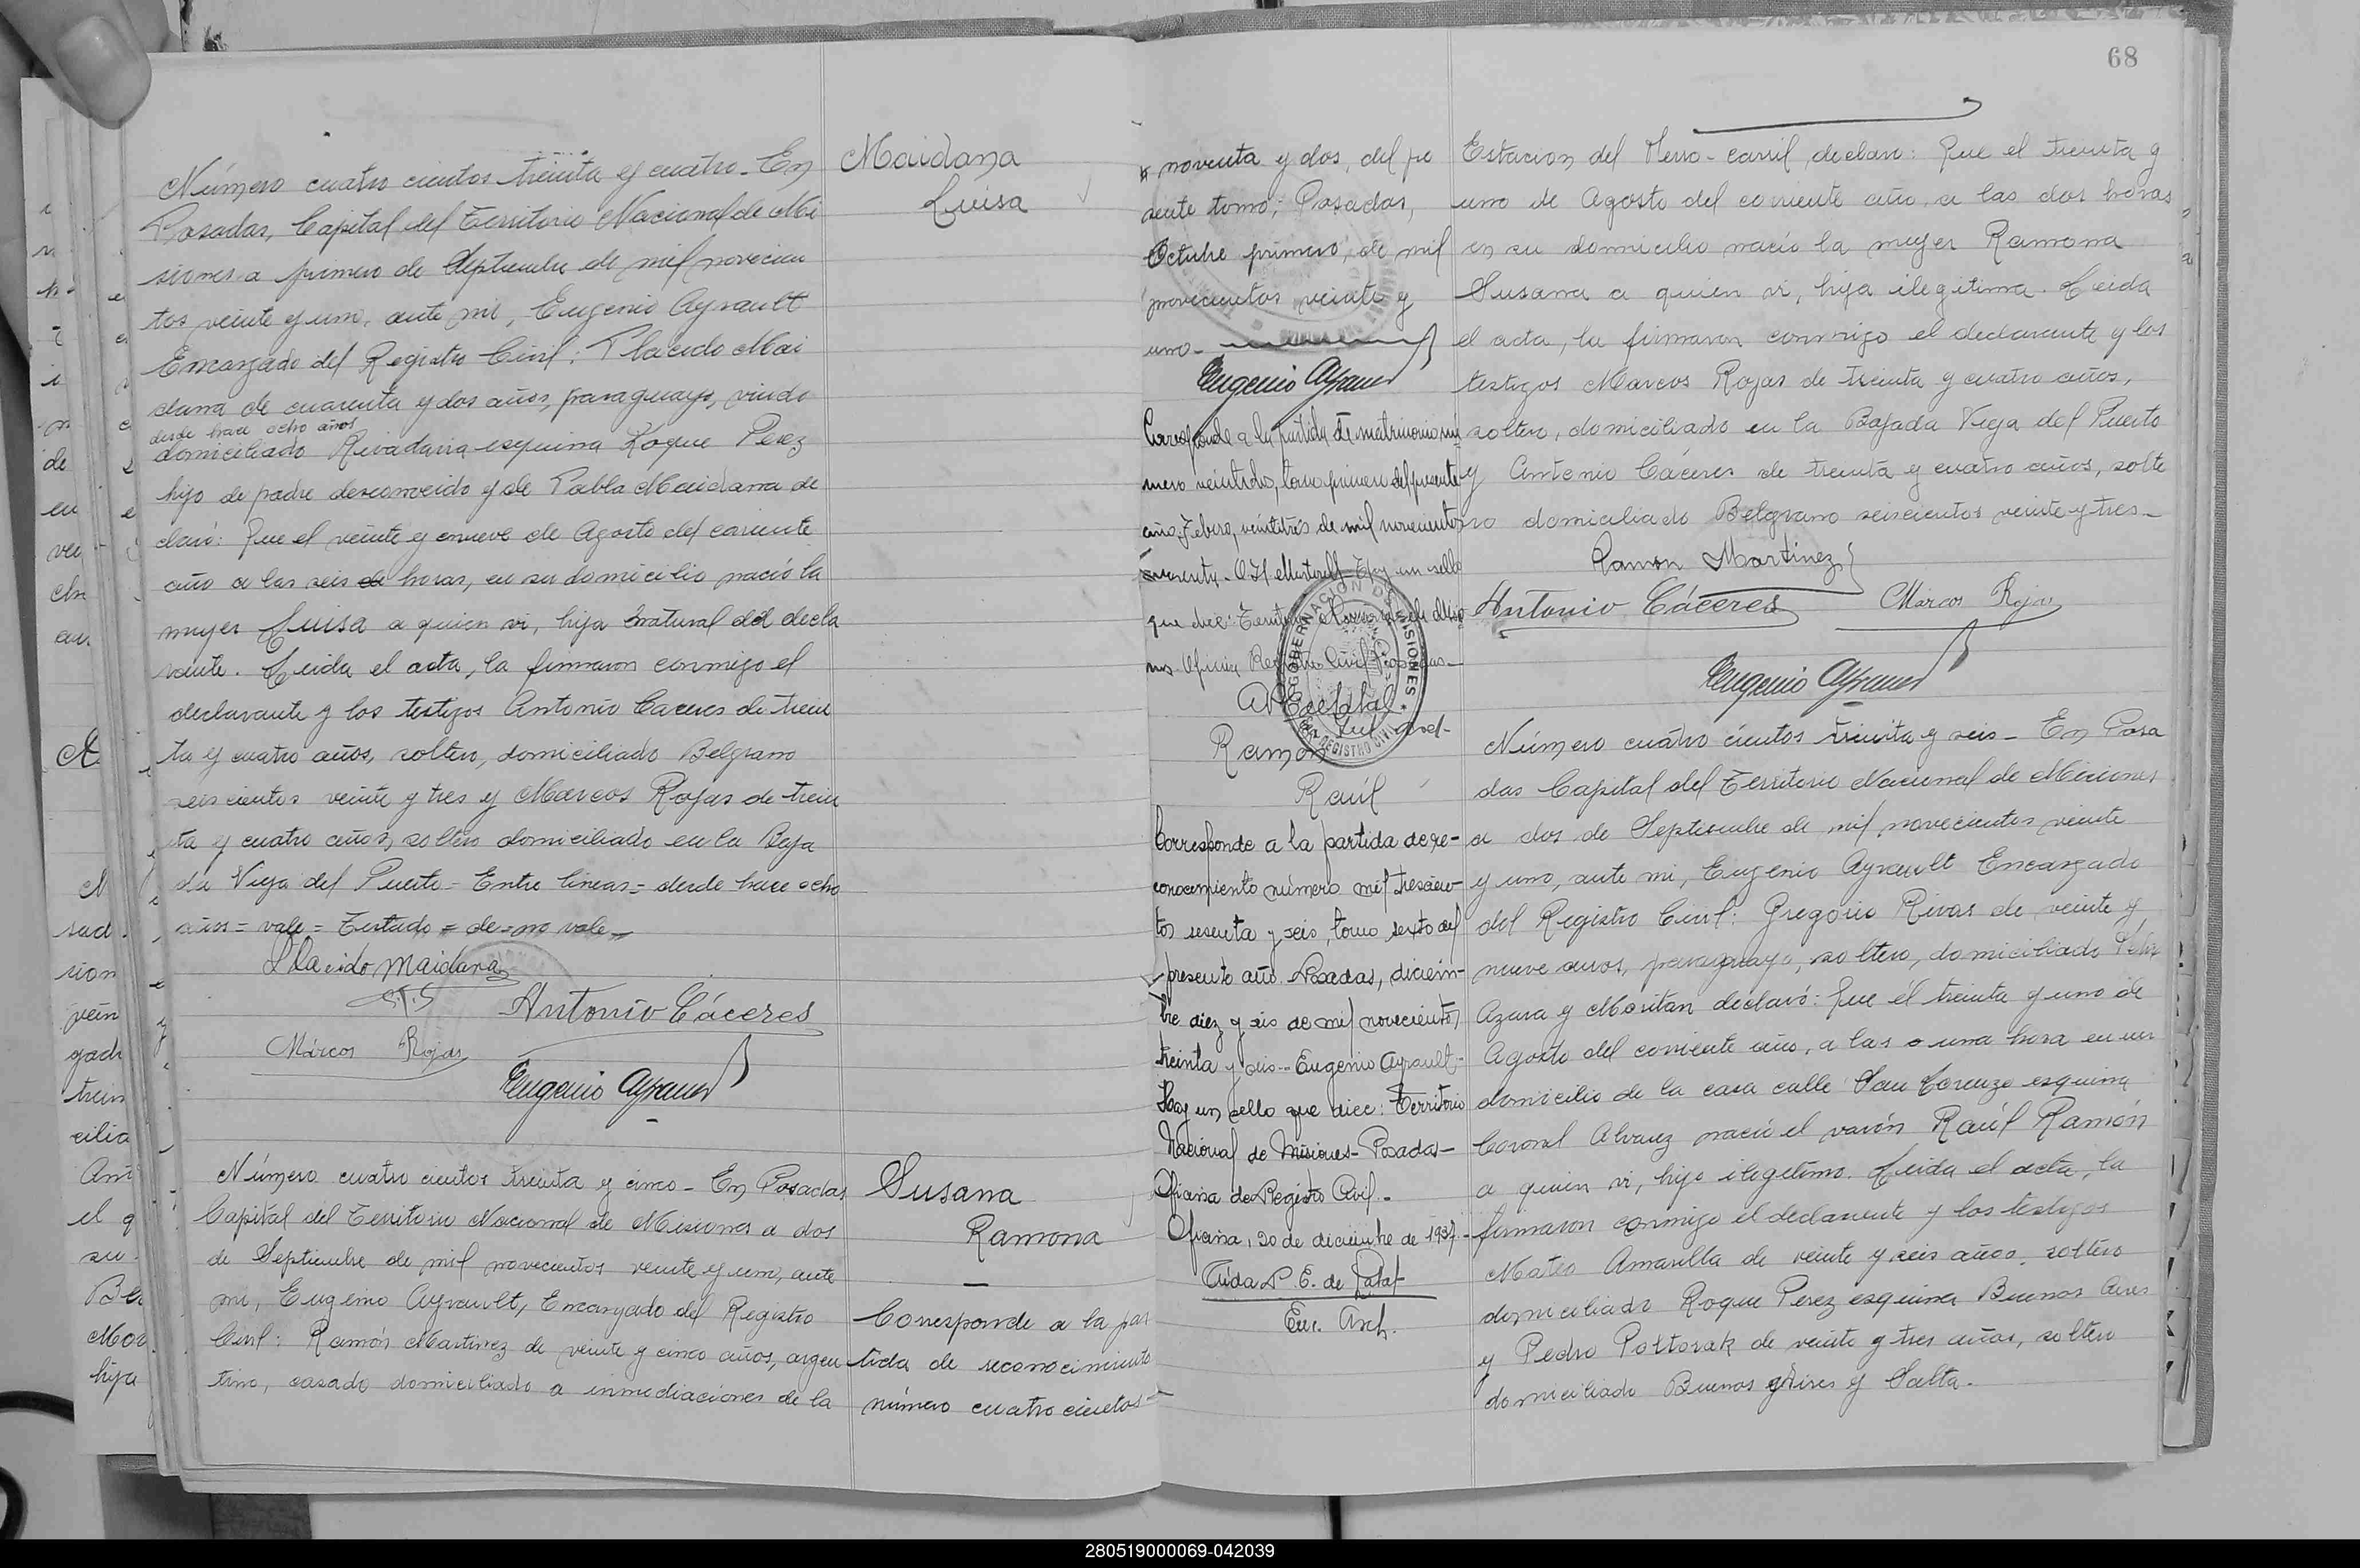 Número cuatro cientos treinta y cuatro - En
Posadas, Capital del Territorio Nacional de Mi
siones a primero de Septiembre de mil novecien
tos veinte y uno, ante mi, Eugenio Ayrault
Encargado del Registro Civil: Placido Mai
dana de cuarenta y dos años, paraguayo, viudo
desde hace ocho años
domiciliado Rivadavia esquina Roque Perez
hijo de padre desconocido y de Pabla Maidana de
claró: Que el veinte y nueve de Agosto del corriente
año a las seis de horas, en su domicilio nació la
mujer Luisa a quien vi, hija natural del decla
rante. Leida el acta, la firmaron conmigo el
declarante y los testigos Antonio Caceres de trein
ta y cuatro años, soltero, domiciliado Belgrano
seiscientos veinte y tres y Marcos Rojas de trein
ta y cuatro años, soltero domiciliado en la Baja
da Vieja del Puerto = Entre lineas = desde hace ocho
años = vale = Testado = de = no vale =
Placido Maidana
Antonio Cáceres
Marcos Rojas
Eugenio Ayrault
Maidana
Luisa
Número cuatro cientos treinta y cinco - En Posadas
Capital del Territorio Nacional de Misiones a dos
de Septiembre de mil novecientos veinte y uno, ante
mi, Eugenio Ayrault, Encargado del Registro
Civil: Ramón Martinez de veinte y cinco años, argen
tino, casado domiciliado a inmediaciones de la
Susana
Ramona
Corresponde a la par
tida de reconocimiento
número cuatro cientos
68
noventa y dos, del pre
sente tomo; Posadas,
Octubre primero, de mil
novecientos veinte y
uno -
Eugenio Ayrault
Corresponde a la partida de matrimonio nú
mero veintidós, tomo primero del presente
año. Febrero, veintitrés de mil novecientos
cuarenta - Hay un sello
que dice: Territorio Nacional de Misio
nes Oficina Registro Civil Posadas -
GOBERNACION DE MISIONES
REGISTRO CIVIL
Estacion del Ferro-carril, declaro: Que el treinta y
uno de Agosto del corriente año, a las dos horas
en su domicilio nació la mujer Ramona
Susana a quien vi, hija ilegitima. Leida
el acta, la firmaron conmigo el declarante y los
testigos Marcos Rojas de treinta y cuatro años,
soltero, domiciliado en la Bajada Vieja del Puerto
y Antonio Cáceres de treinta y cuatro años, solte
ro domiciliado Belgrano seiscientos veinte y tres -
Ramon Martinez
Antonio Cáceres Marcos Rojas
Eugenio Ayrault
Ramón
Raúl
Corresponde a la partida de re-
conocimiento número mil trescien-
tos sesenta y seis, tomo sexto del
presente año. Posadas, diciem-
bre diez y seis de mil novecientos
treinta y seis - Eugenio Ayrault -
Hay un sello que dice: Territorio
Nacional de Misiones - Posadas -
Oficina de Registro Civil -
Oficina, 20 de diciembre de 1937 -
Aida P. E. de
Enc. Arch.
Número cuatro cientos treinta y seis - En Posa
das Capital del Territorio Nacional de Misiones
a dos de Septiembre de mil novecientos veinte
y uno, ante mi, Eugenio Ayrault Encargado
del Registro Civil: Gregorio Rivas de veinte y
nueve años, paraguayo, soltero, domiciliado Felix
Azara y Moritan declaró: Que el treinta y uno de
Agosto del corriente año, a las o una hora en un
domicilio de la casa calle San Lorenzo esquina
Coronel Alvarez nació el varón Raúl Ramón
a quien vi, hijo ilegitimo. Leida el acta, la
firmaron conmigo el declarante y los testigos
Mateo Amarilla de veinte y seis años, soltero
domiciliado Roque Perez esquina Buenos Aires
y Pedro Poltorak de veinte y tres años, soltero
domiciliado Buenos Aires y Salta -
280519000069-042039